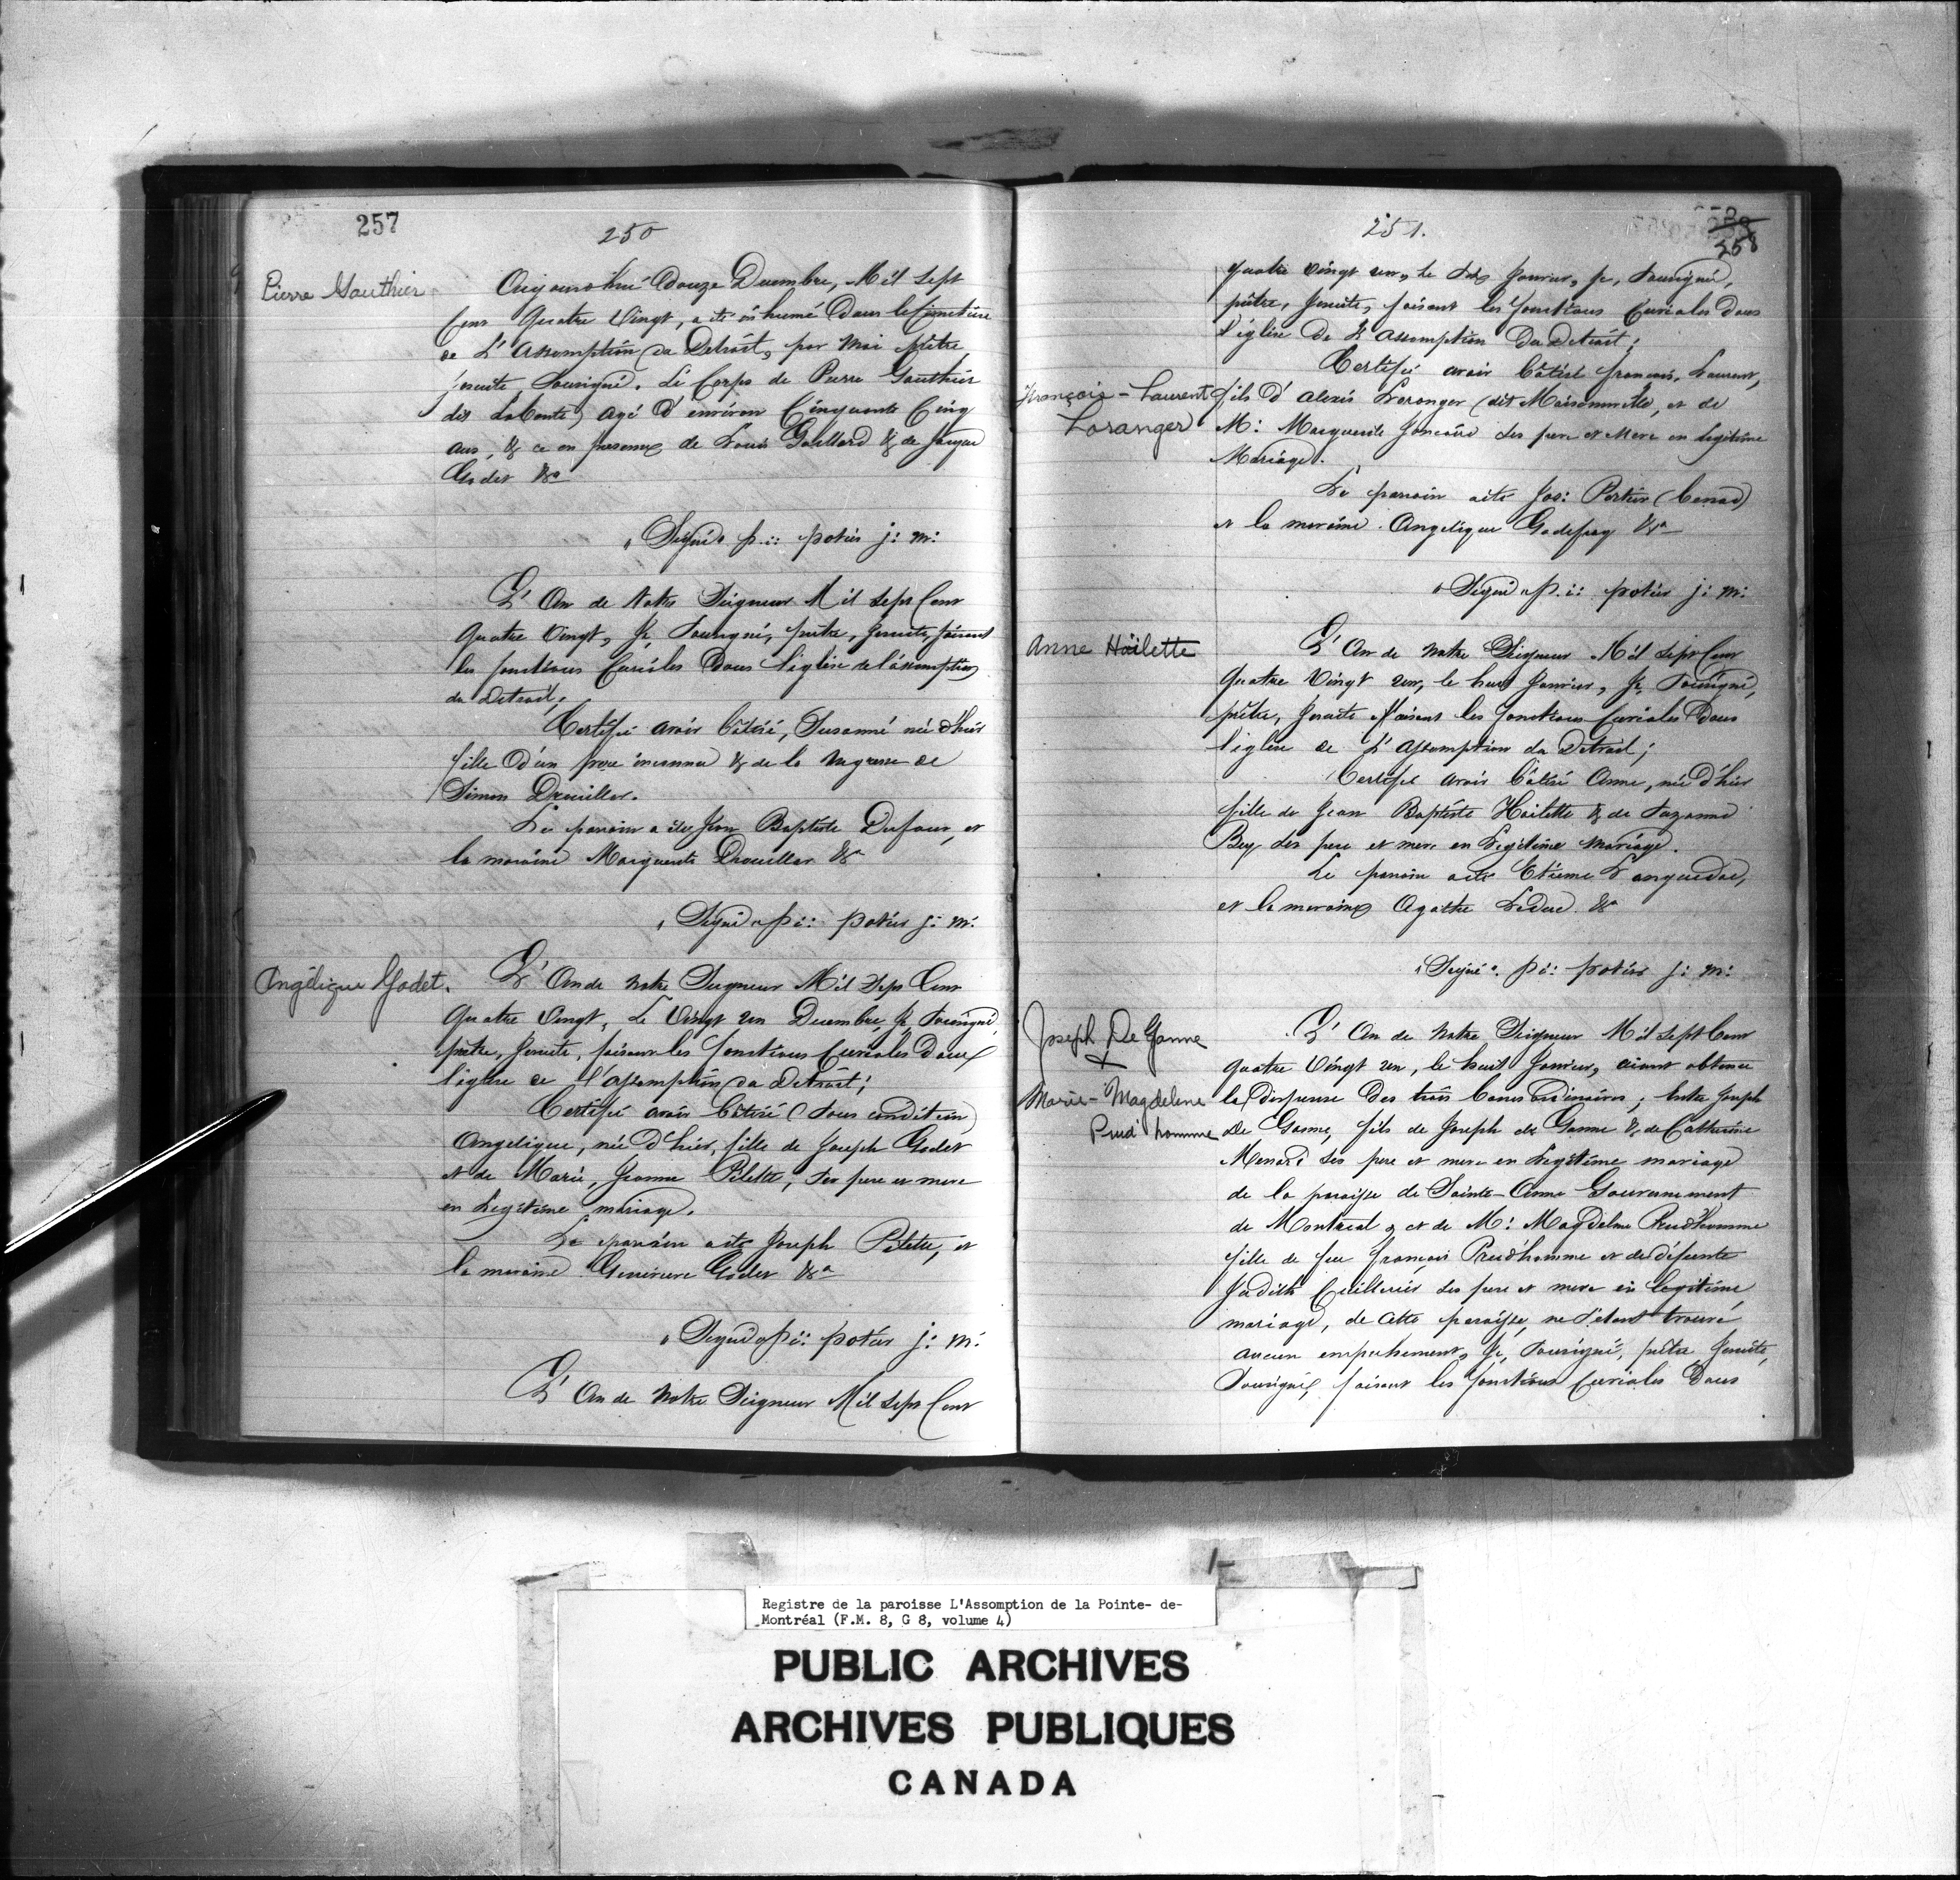 257
250
Pierre Gauthier
Aujourd'hui Douze Decembre, Mil Sept
Cent Quatre Vingt, a été inhumé Dans le Cimetière
de L'Assomption du Detroit, par moi prêtre
jesuite Soussigné. Le Corps de Pierre Gauthier
dit LaBonté, agé d'environ Cinquante Cinq
ans, & ce en presence de Louis Gaillard & de Jacque
Godet &a
"Signé" p.: potier j: m:
L'An de Notre Seigneur Mil Sept Cent
Quatre Vingt, Je, Soussigné, prêtre, Jesuite, faisant
les fonctions Curiales Dans l'église de l'assomption
du Detroit,
Certifié avoir bâtisé, Susanne née d'hier
fille d'un pere inconnu & de la negresse de
Simon Drouillar.
Le parrain a été Jean Baptiste Dufour, et
la maraine Marguerite Drouillar &a
"Signé" p:: potier j: m:
Angélique Godet.
L'An de Notre Seigneur Mil Sept Cent
Quatre Vingt, Le Vingt un Decembre, Je, Soussigné,
prêtre, Jesuite, faisant les fonctions Curiales Dans
l'église de l'assomption du Detroit;
Certifié avoir bâtisé (sous condition)
Angelique, née d'hier, fille de Joseph Godet
et de Marie, Jeanne Pilette, ses pere et mere
en Legitime mariage.
Le parrain a été Joseph Pilette, et
la maraine Genevieve Godet &a
"Signé" p:: potier j: m:
L'An de Notre Seigneur Mil Sept Cent
251.
258
quatre Vingt un, le Six Janvier, je, Soussigné,
prêtre, Jesuite, faisant les fonctions Curiales Dans
l'église de L'assomption Du Detroit;
Certifié avoir bâtisé françois, Laurent,
François-Laurent
Loranger
fils d'alexis Loranger (dit Maisonville, et de
M: Marguerite Joncaire ses pere et Mere en legitime
Mariage.
Le parrain a été Jos: Poitier (Benac)
et la maraine Angelique Godefroy &a
"Signé" p.: potier j: m:
Anne Hailette
L'An de Notre Seigneur Mil Sept Cent
Quatre Vingt un, le huit Janvier, Je, Soussigné,
prêtre, Jesuite faisant les fonctions Curiales Dans
l'église de L'assomption du Detroit;
Certifié avoir bâtisé Anne, née d'hier
fille de Jean Baptiste Hailette & de Suzanne
Bey ses pere et mere en Legitime Mariage.
Le parrain a été Etienne Languedoc,
et la maraine Agathe Leduc &a
"Signé" p: potier j: m:
Joseph De Ganne
&
Marie-Magdelene
Prud'homme
L'An de Notre Seigneur Mil Sept Cent
quatre Vingt un, le huit Janvier, aiant obtenu
la dispense Des trois bancs ordinaires; Entre Joseph
De Ganne, fils de Joseph de Ganne & de Catherine
Menard ses pere et mere en Legitime mariage
de la paroisse de Sainte-Anne Gouvernement
de Montreal, et de M: Magdelene Prud'homme
fille de feu françois Prud'homme et de défunte
Judith Cuillerier ses pere et mere en legitime
mariage, de cette paroisse, ne s'etant trouvé
aucun empechement, Je, Soussigné, prêtre Jesuite,
Soussigné, faisant les fonctions Curiales Dans
Registre de la paroisse L'Assomption de la Pointe- de-
Montréal (F.M. 8, G 8, volume 4)
PUBLIC ARCHIVES
ARCHIVES PUBLIQUES
CANADA